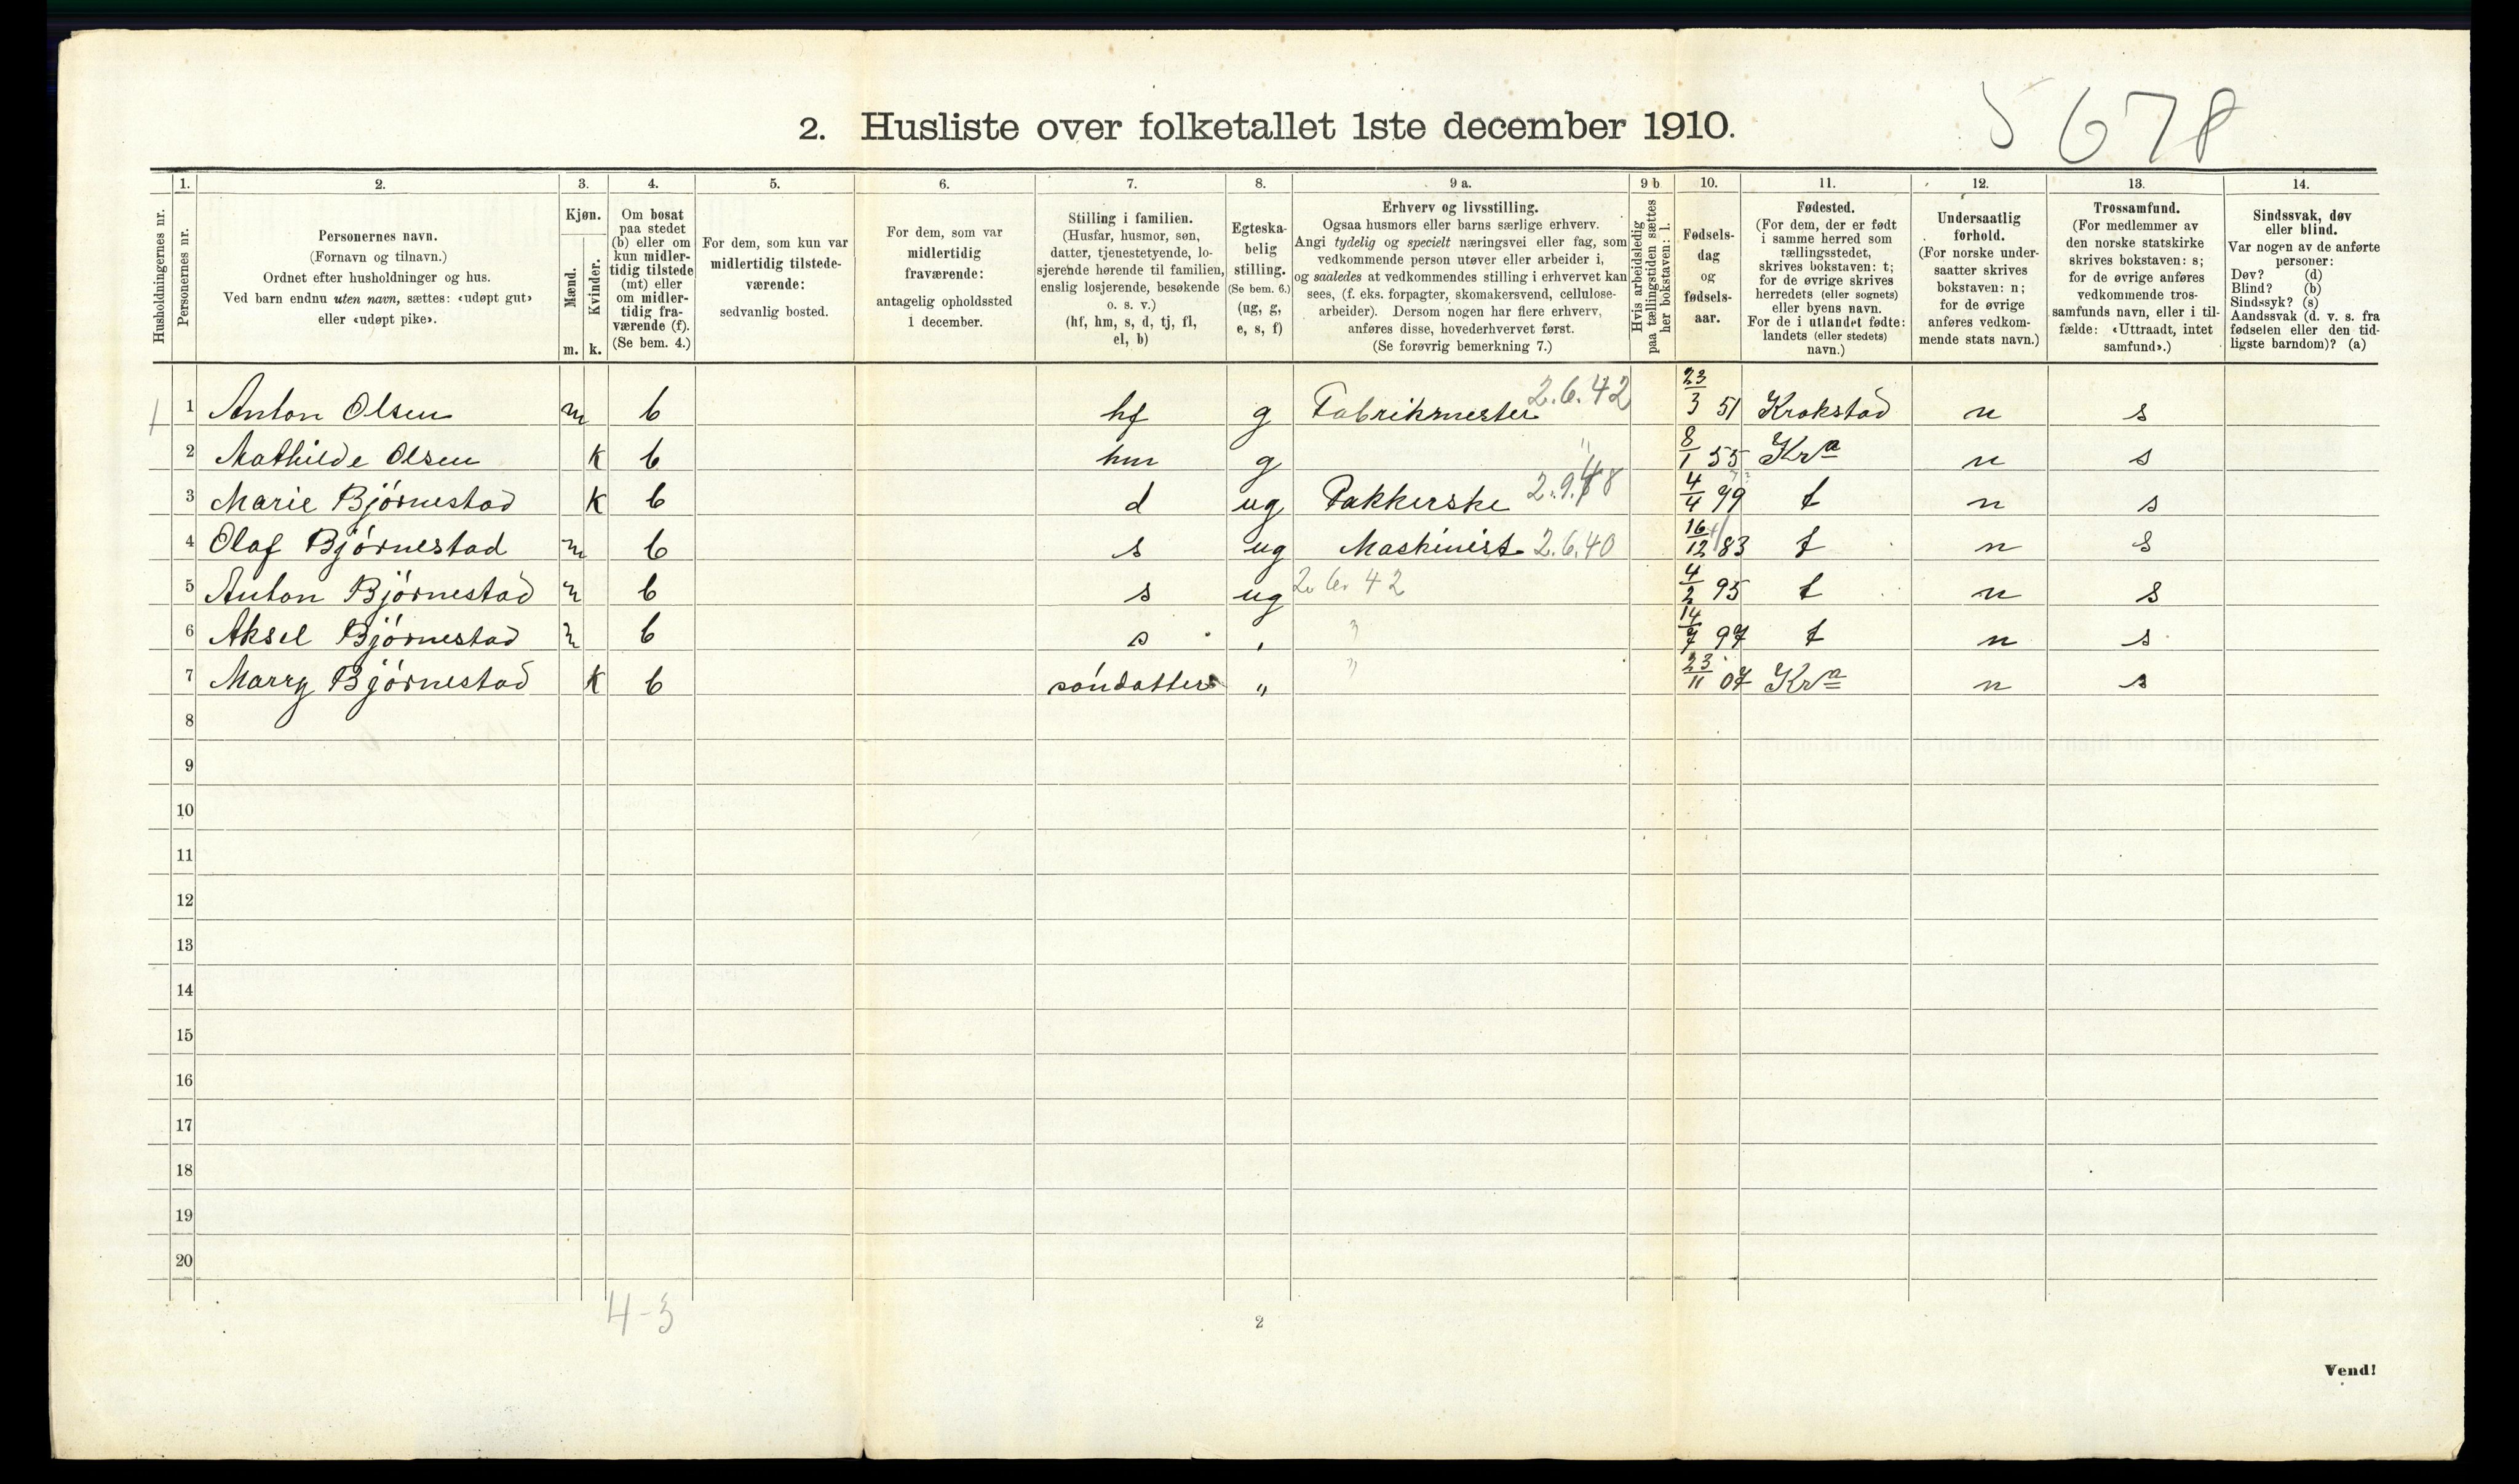 5 678
2. Husliste over folketallet 1ste december 1910.
Husholdningernes nr.
1.
Personernes nr.
2.
Personernes navn.
(Fornavn og tilnavn.)
Ordnet efter husholdninger og hus.
Ved barn endnu uten navn, sættes: «udøpt gut»
eller «udøpt pike».
3.
Kjøn.
Mænd.
Kvinder.
m. k.
4.
Om bosat
paa stedet
(b) eller om
kun midler-
tidig tilstede
(mt) eller
om midler-
tidig fra-
værende (f).
(Se bem. 4.)
5.
For dem, som kun var
midlertidig tilstede-
værende:
sedvanlig bosted.
6.
For dem, som var
midlertidig
fraværende:
antagelig opholdssted
1 december.
7.
Stilling i familien.
(Husfar, husmor, søn,
datter, tjenestetyende, lo-
sjerende hørende til familien,
enslig losjerende, besøkende
o. s. v.)
(hf, hm, s, d, tj, fl,
el, b)
8.
Egteska-
belig
stilling.
(Se bem. 6.)
(ug, g,
e, s, f)
9 a.
Erhverv og livsstilling.
Ogsaa husmors eller barns særlige erhverv.
Angi tydelig og specielt næringsvei eller fag, som
vedkommende person utøver eller arbeider i,
og saaledes at vedkommendes stilling i erhvervet kan
sees, (f. eks. forpagter, skomakersvend, cellulose-
arbeider). Dersom nogen har flere erhverv,
anføres disse, hovederhvervet først.
(Se forøvrig bemerkning 7.)
9 b
Hvis arbeidsledig
paa tællingstiden sættes
her bokstaven: l.
10.
Fødsels-
dag
og
fødsels-
aar.
11.
Fødested.
(For dem, der er født
i samme herred som
tællingsstedet,
skrives bokstaven: t;
for de øvrige skrives
herredets (eller sognets)
eller byens navn.
For de i utlandet fødte:
landets (eller stedets)
navn.)
12.
Undersaatlig
forhold.
(For norske under-
saatter skrives
bokstaven: n;
for de øvrige
anføres vedkom-
mende stats navn.)
13.
Trossamfund.
(For medlemmer av
den norske statskirke
skrives bokstaven: s;
for de øvrige anføres
vedkommende tros-
samfunds navn, eller i til-
fælde: «Uttraadt, intet
samfund».)
14.
Sindssvak, døv
eller blind.
Var nogen av de anførte
personer:
Døv? (d)
Blind? (b)
Sindssyk? (s)
Aandssvak (d. v. s. fra
fødselen eller den tid-
ligste barndom)? (a)
1 Anton Olsen m b hf g Fabrikmester 2.6.42 23/3 51 Krokstad n s
2 Mathilde Olsen k b hm g " 8/1 55 Kra n s
3 Marie Bjørnestad k b d ug Pakkerske 4/4 79 t n s
4 Olaf Bjørnestad m b s ug Maskinist 2.6.40 16/12 83 t n s
5 Anton Bjørnestad m b s ug 4/2 95 t n s
6 Aksel Bjørnestad m b s 14/7 97 t n s
7 Marry Bjørnestad k b søndatter " " 23/11 07 Kra n s
8
9
10
11
12
13
14
15
16
17
18
19
20
4-3
2
Vend!